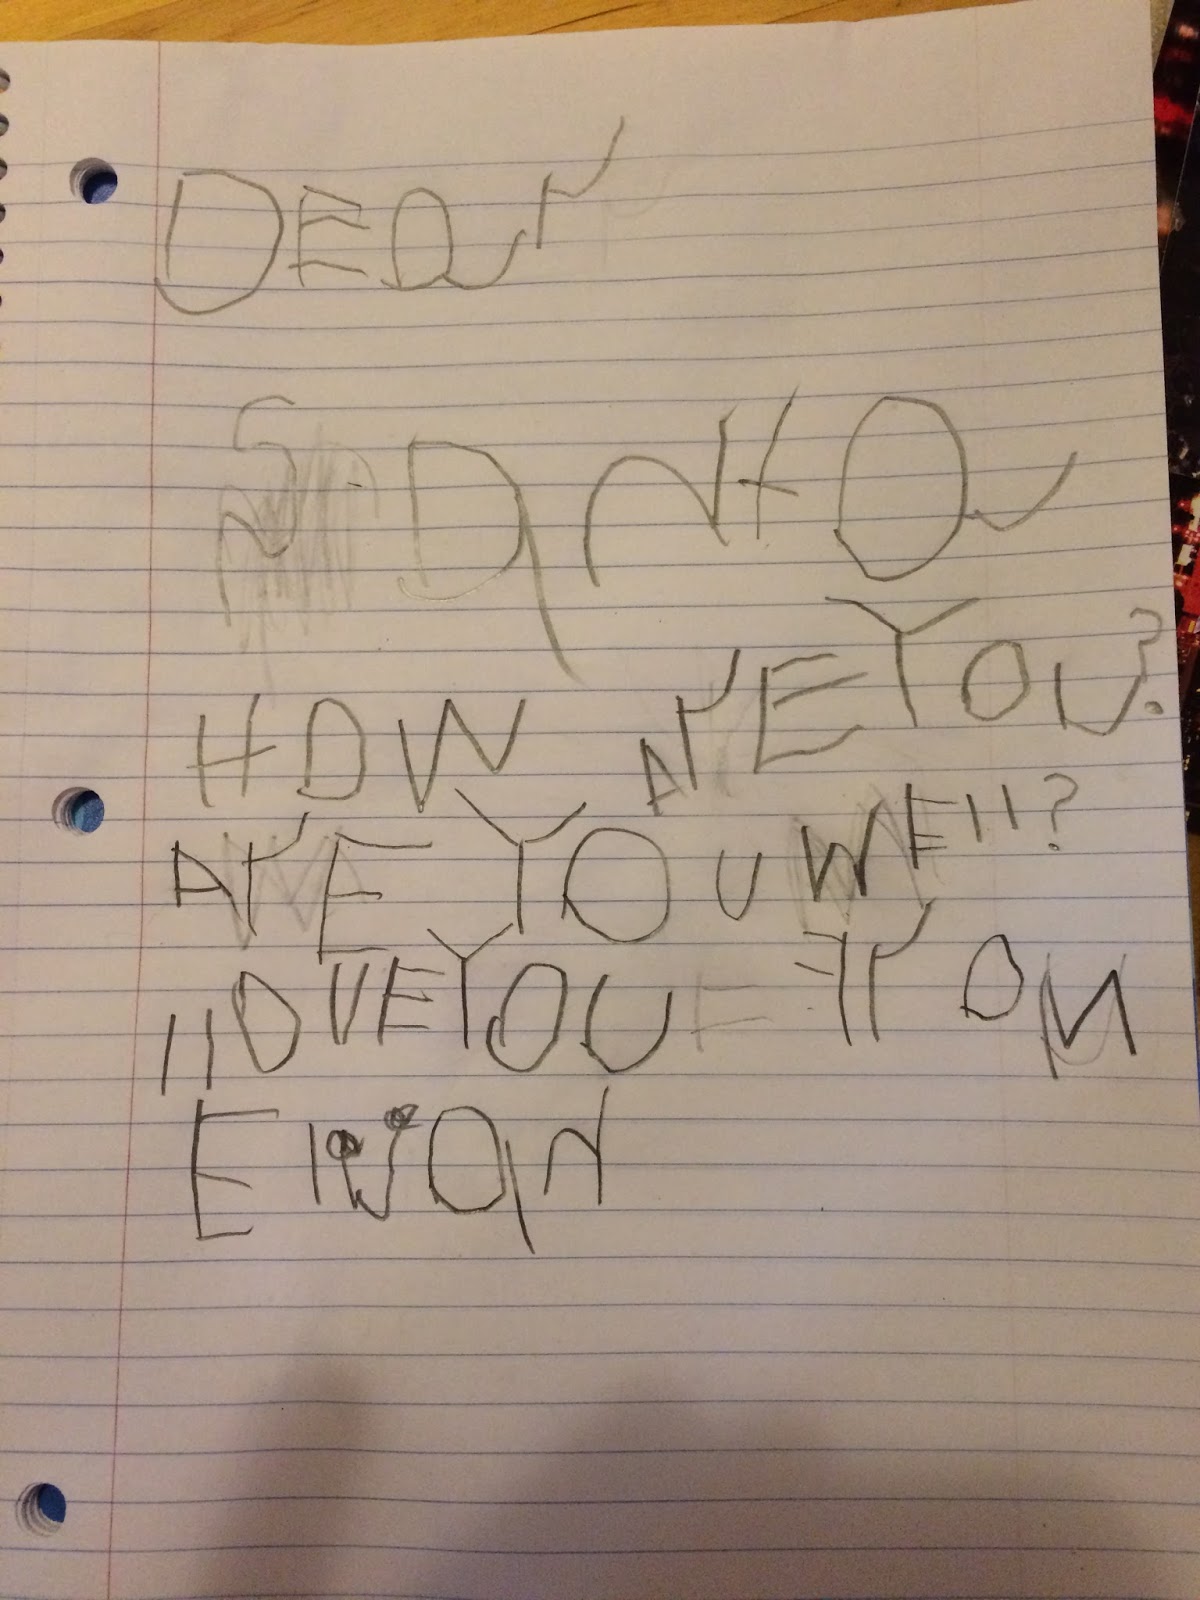 DEar
Santa
HOW ArE YOU?
ArE YOU WEll?
I lOVE YOU FrOM
Elvan